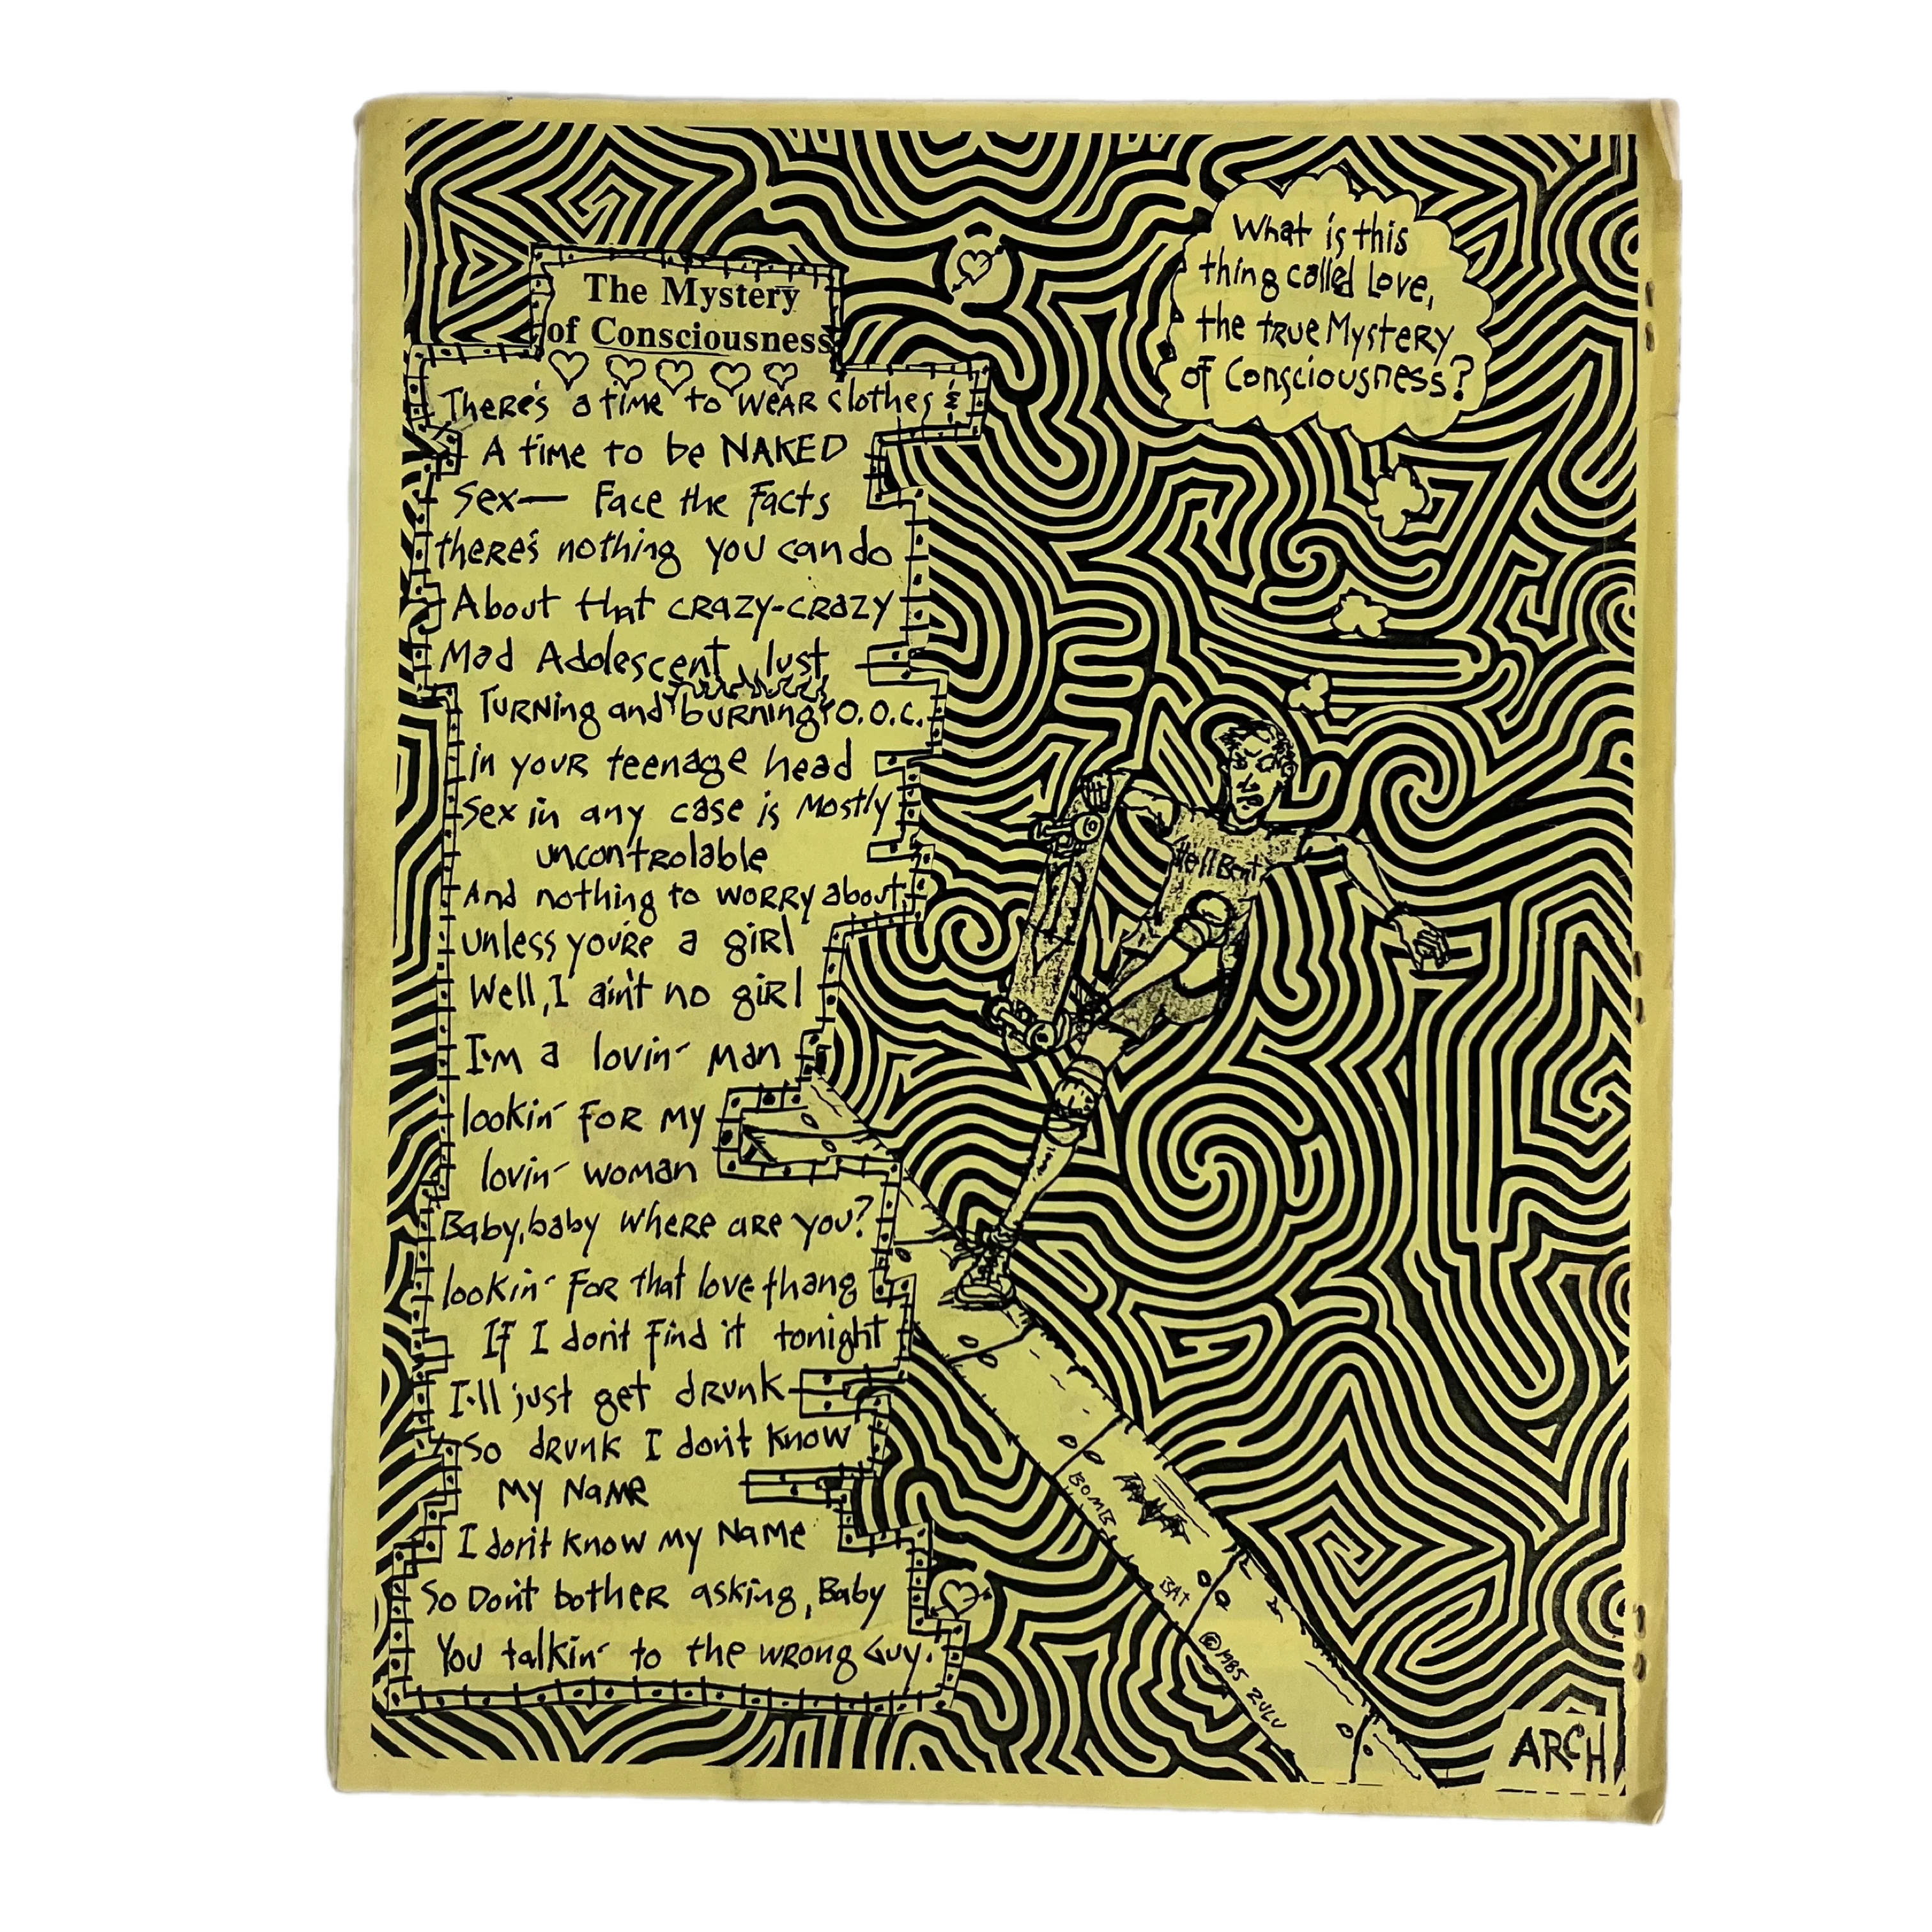 The Mystery
of Consciousness
There's a time to wear clothes &
A time to be NAKED
Sex— Face the Facts
there's nothing you can do
About that crazy-crazy
Mad Adolescent lust
Turning and burning O.O.C.
in your teenage head
Sex in any case is Mostly
uncontrolable
And nothing to worry about
unless you're a girl
Well, I ain't no girl
I'm a lovin' man
lookin' for my
lovin' woman
Baby, baby where are you?
lookin' for that love thang
If I don't find it tonight
I'll just get drunk
So drunk I don't know
my name
I don't know my name
So Don't bother asking, Baby
You talkin' to the wrong Guy.
What is this
thing called Love,
the true Mystery
of Consciousness?
HellBent
BOMB
BAT
©1985 ZULU
ARCH